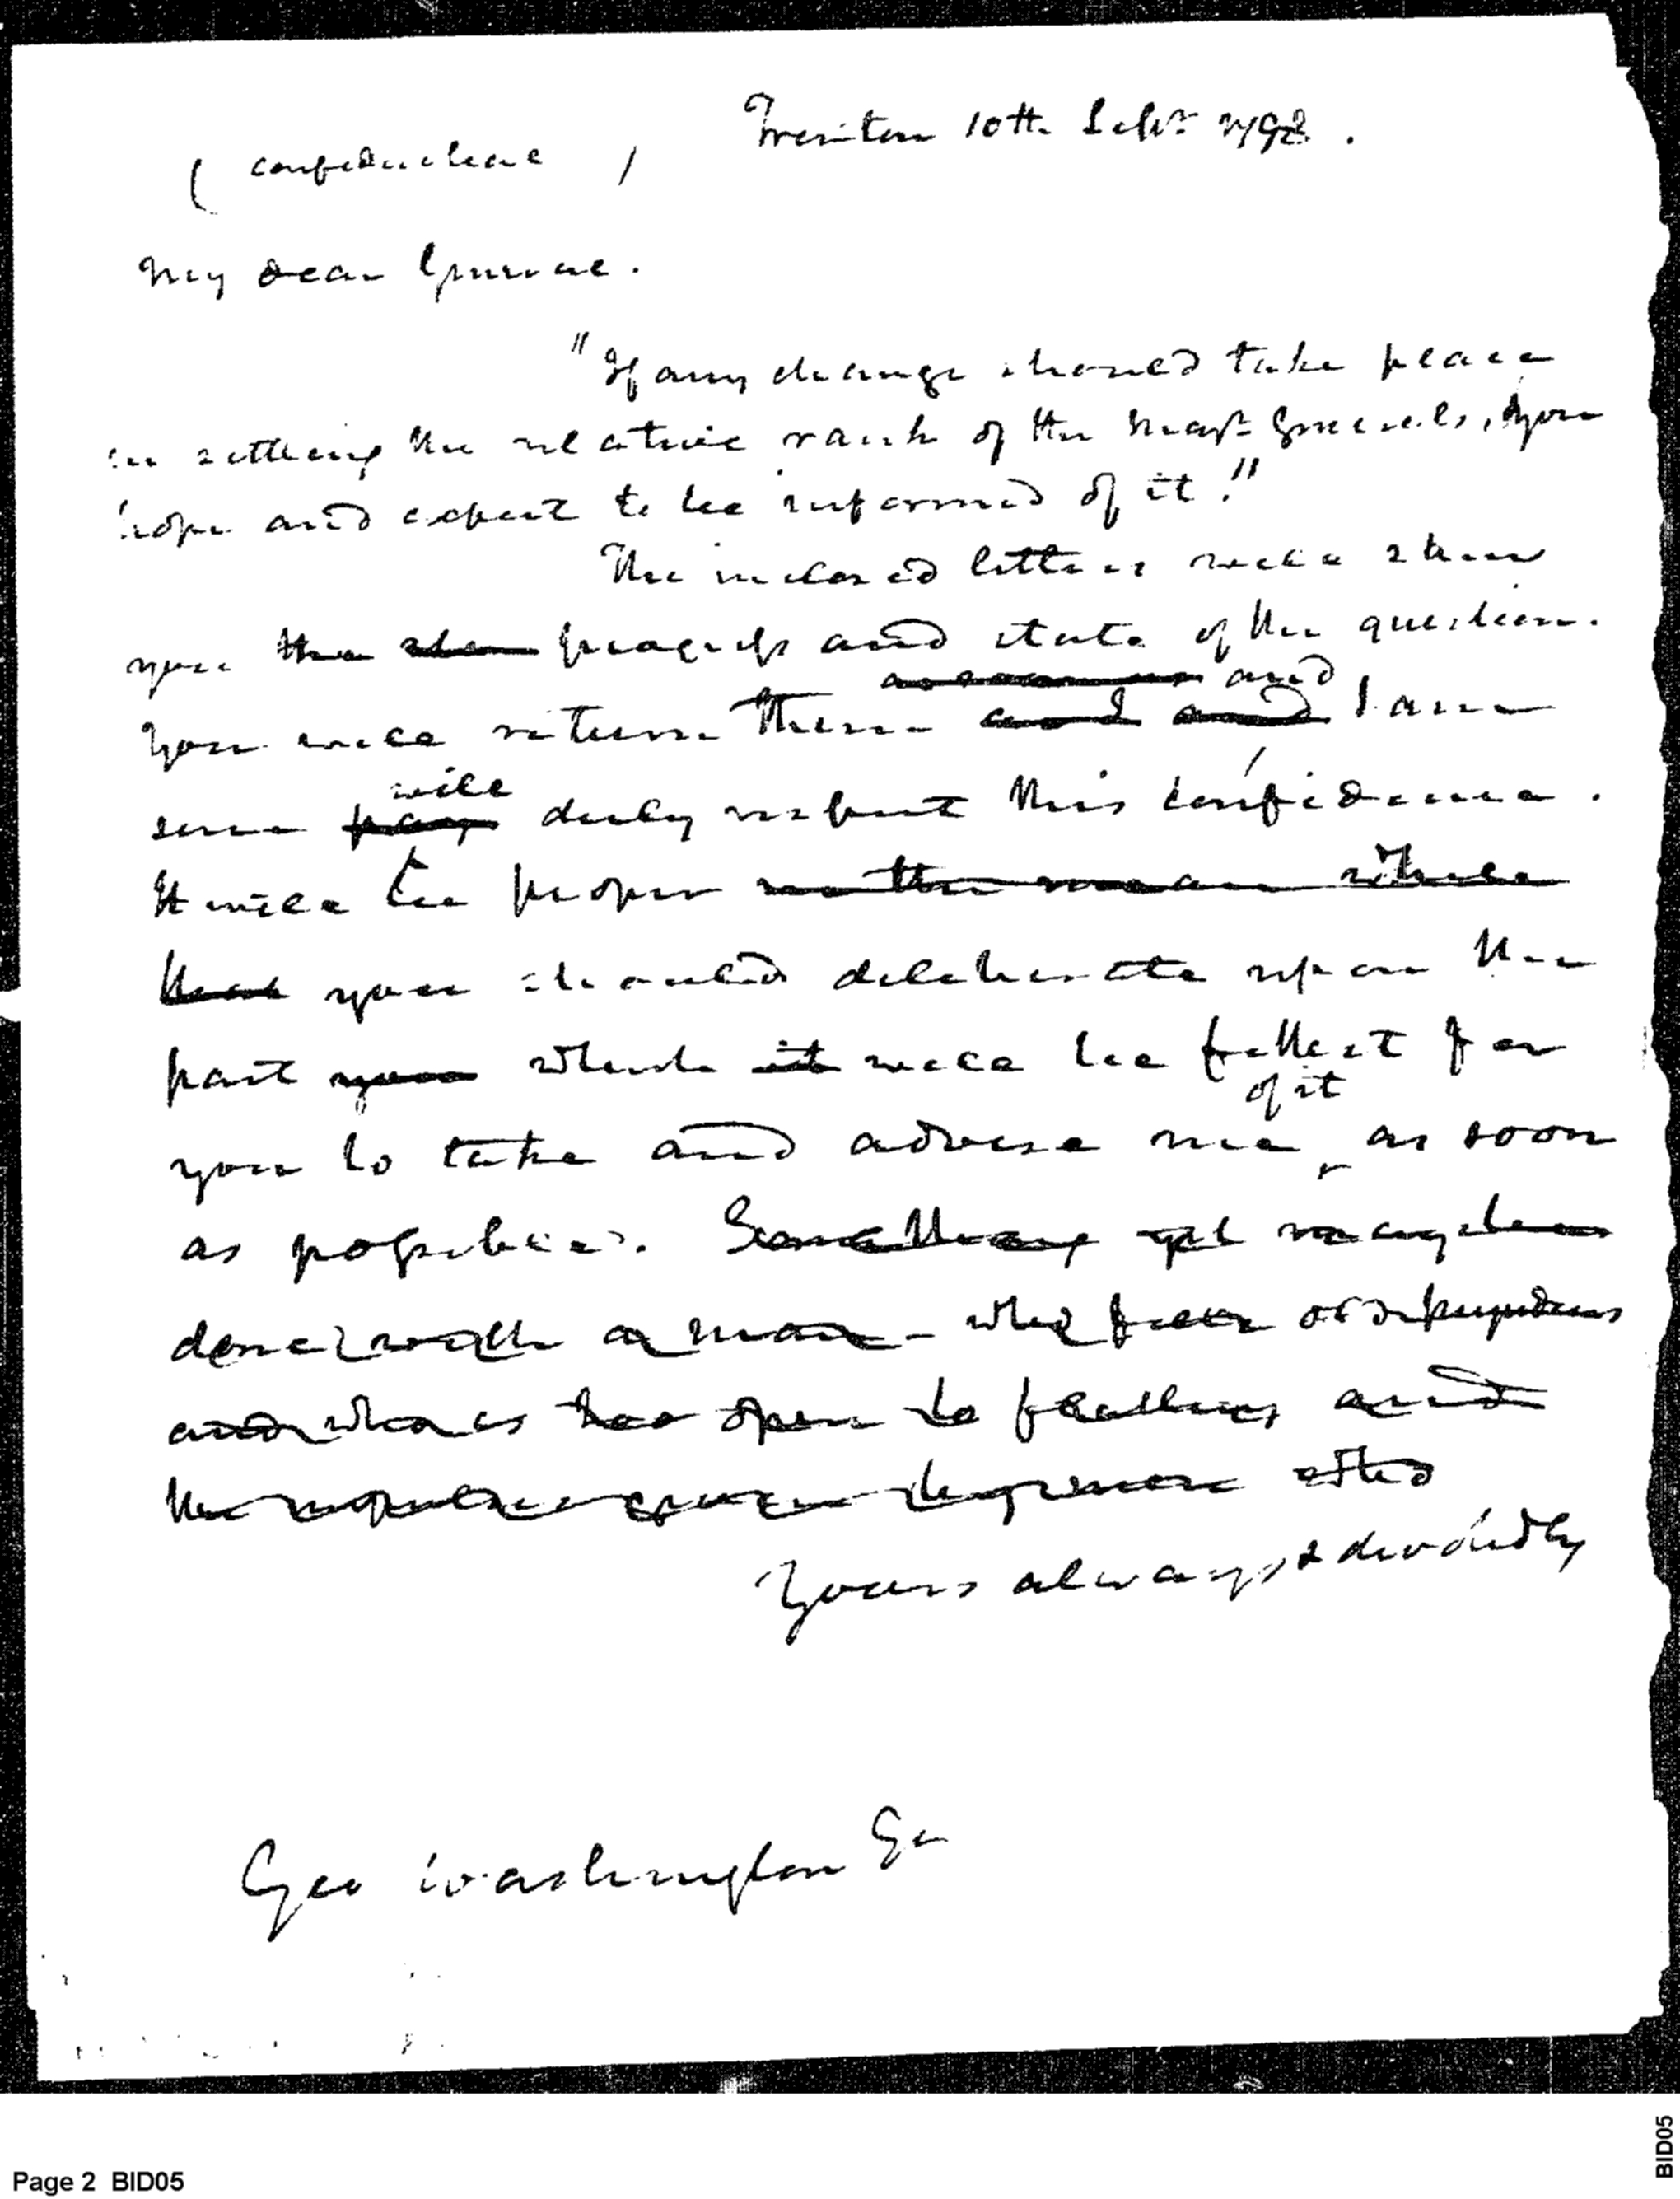 Trenton 10th Sepr 1798.
(confidential)
My dear General.
"If any change should take place
in settling the relative rank of the Majr Generals, you
hope and expect to be informed of it."
The inclosed letters will shew
you the progress and state of the question.
and
You will return them I am
will
sure duly respect this confidence.
It will be proper in the mean while
that you should deliberate upon the
part you which it will be fittest for
of it
you to take and advise me as soon
as possible. Something yet may be
done with a man - who
and who is too open to and
the
Yours always & devotedly
Geo Washington
Page 2 BID05
BID05